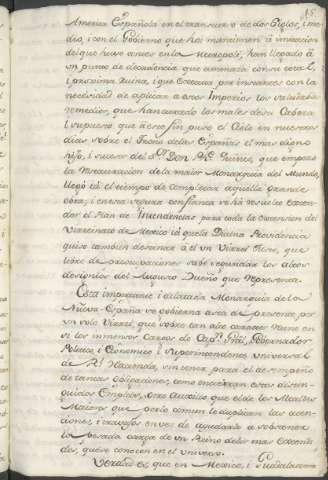 15.
America Española en el transcurso de dos Siglos, i me-
dio, i con el Govierno que hoi mantienen à imitacion
del que huvo antes en la Metropoli, han llegado à
un punto de decadencia que amenaza con su total,
i proxima Ruina, i que estamos por instantes con la
necesidad de aplicar a estos Imperios los saludables
remedios, que han curado los males de su Cabeza:
i supuesto que à este fin puso el Cielo en nuestros
dias sobre el Trono de las Españas el mas digno
Hijo, i sucesor del Sr. Don Phe. Quinto, que empezò
la restauracion de la maior Monarquia del Mundo,
llegò ià el tiempo de completar aquella grande
obra, i en esta segura confianza se hà resuelto exten-
der el Plan de Intendencias para toda la extension del
Virreinato de Mexico ià que la Divina Providencia
quiso tambien destinar à èl un Virrei Tiene, que
libre de preocupaciones sabe segundar los altos
designios del Augusto Dueño que representa.
Esta importante i dilatada Monarquia de la
Nueva España se gobierna asta de presente por
un solo Virrei, que sobre tan alto caracter tiene en
si los inmensos Cargos de Capn. Gral, Governador
Politico, i Economico i Superintendente universal
de Rl. Hacienda, sin tener para el desempeño
de tantas obligaciones, como encierran estos distin-
guidos Empleos, otro Auxilio que el de los Alcaldes
Maiores que por lo comun le duplican las aten-
ciones, i trabajos en vez de ayudarlo a sobstener
la pesada carga de un Reino de los mas extendi-
dos, que se conocen en el universo.
Verdad es, que en Mexico, i Guadalaxara